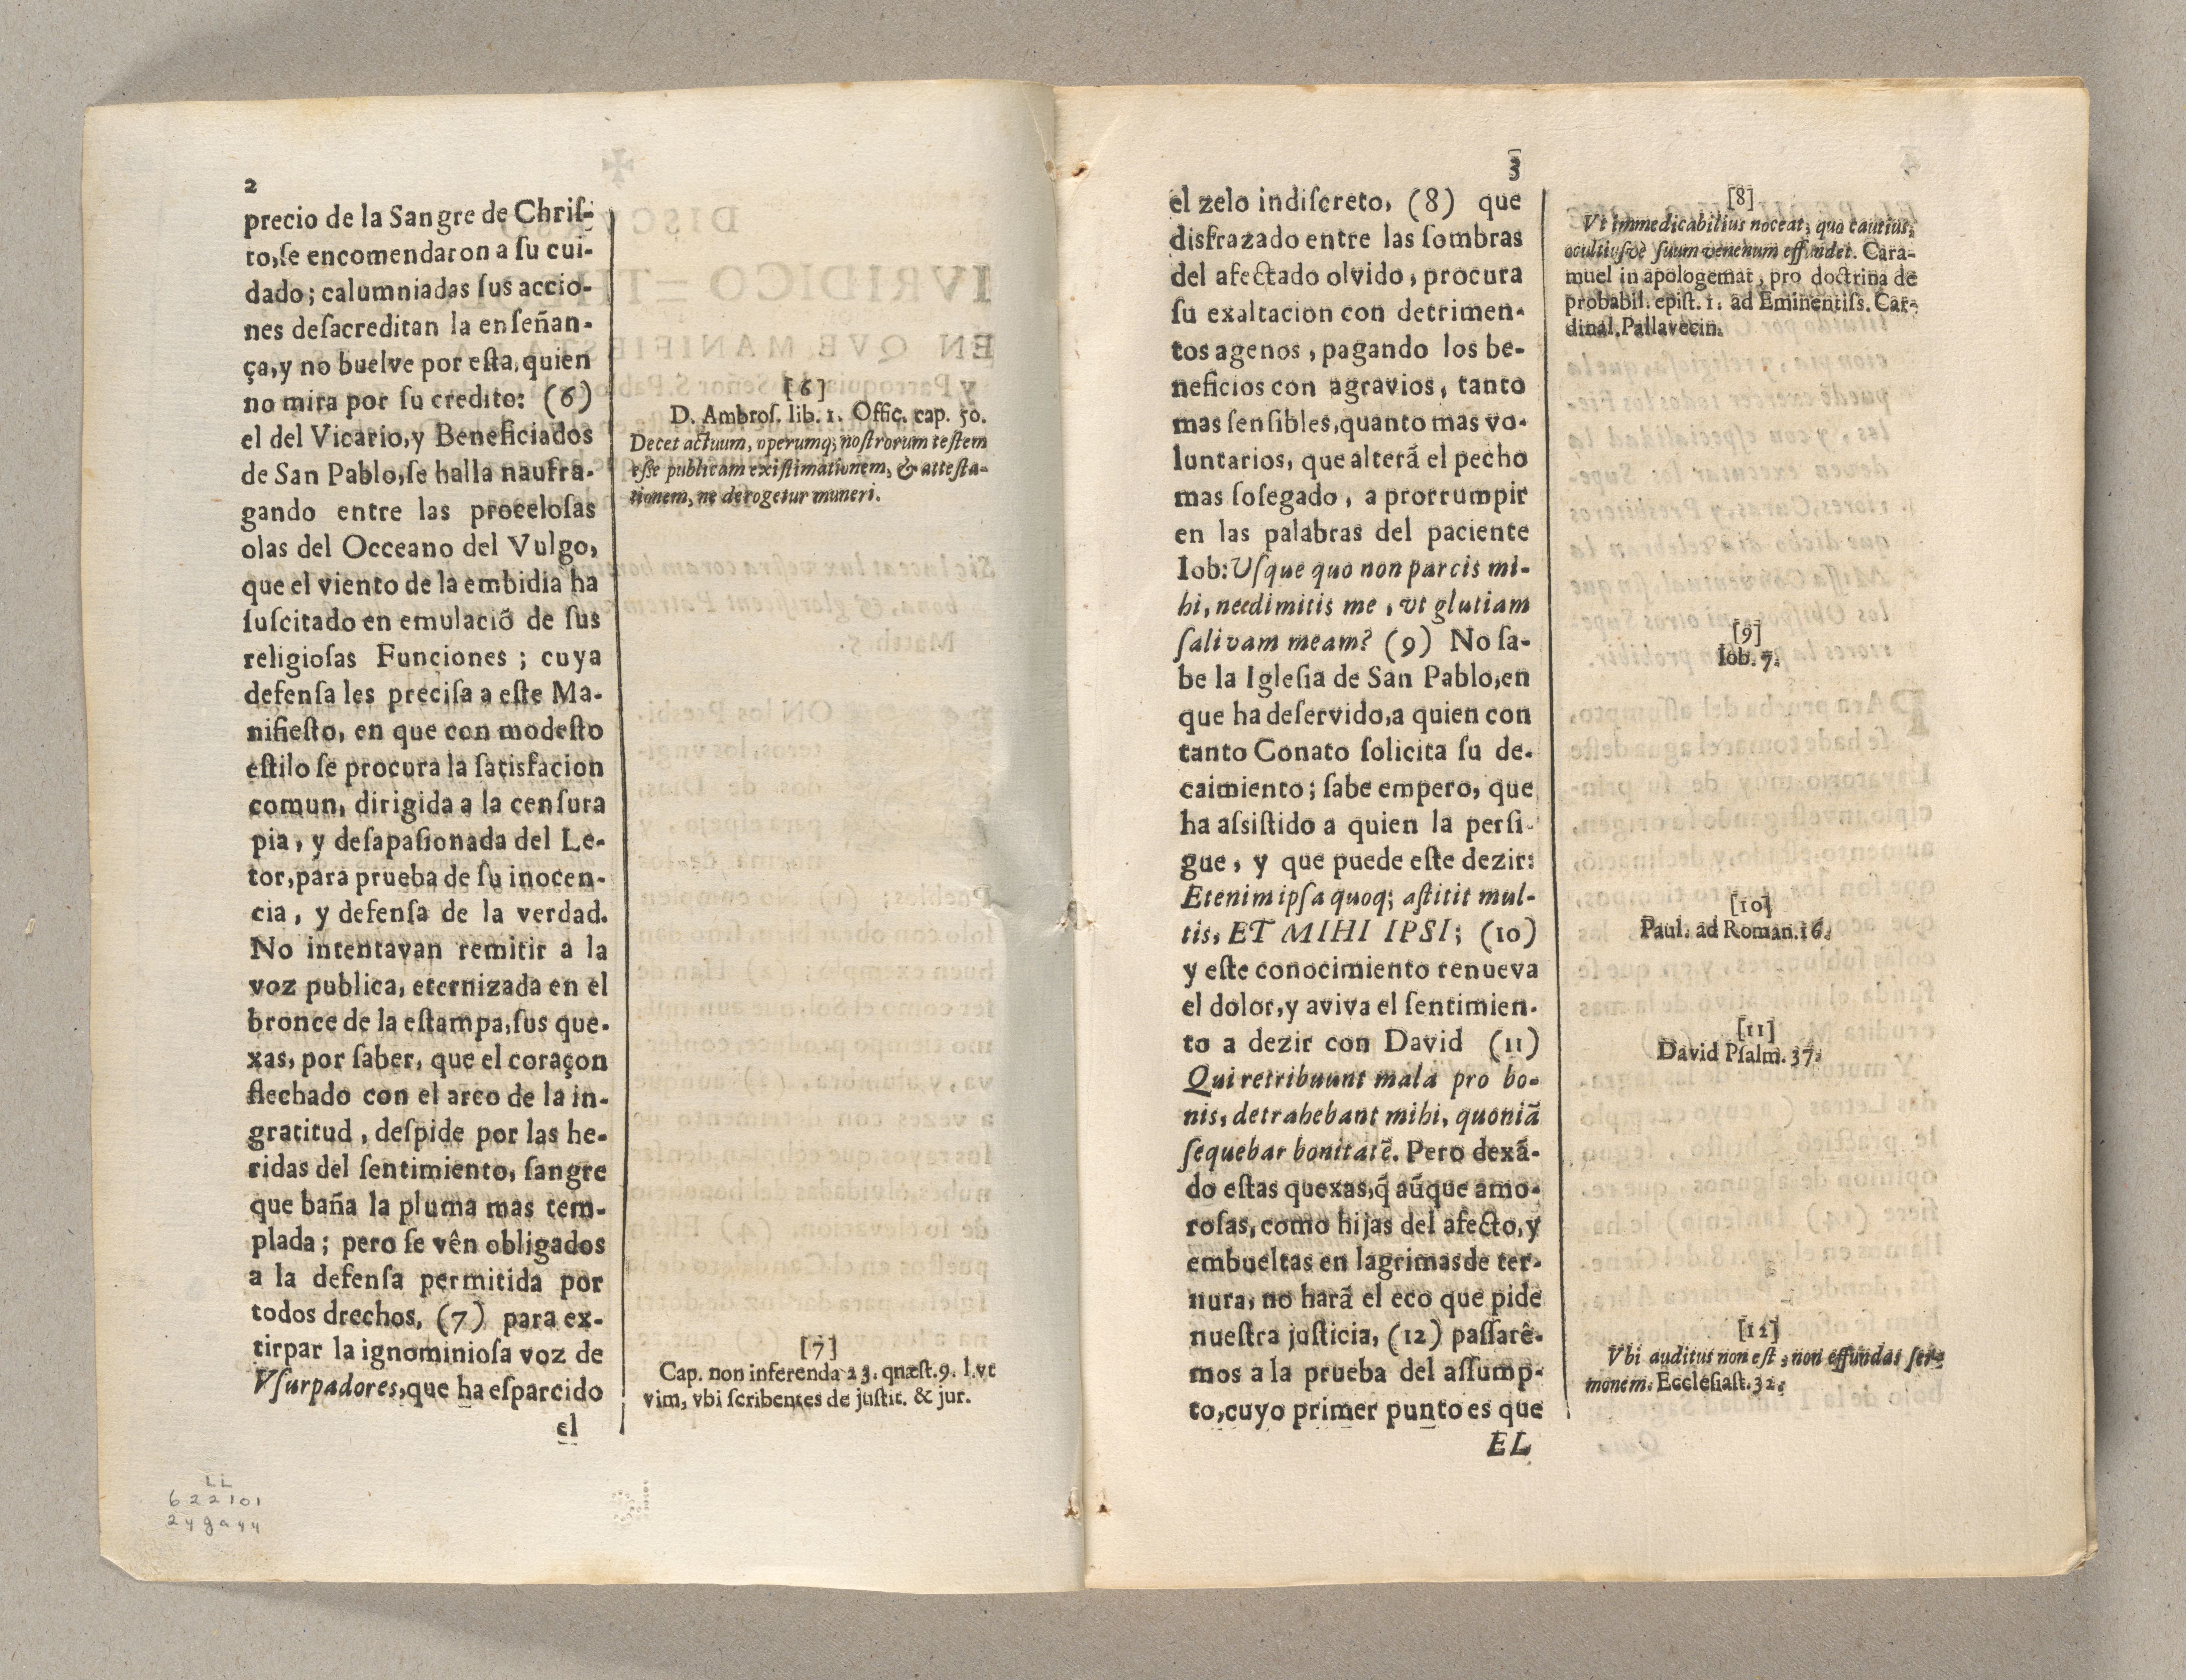 2
precio de la Sangre de Chriſ-
to,ſe encomendaron a ſu cui-
dado; calumniadas ſus accio-
nes deſacreditan la enſeñan-
ça,y no buelve por eſta, quien
no mira por ſu credito: (6)
el del Vicario,y Beneficiados
de San Pablo,ſe halla naufra-
gando entre las proceloſas
olas del Occeano del Vulgo,
que el viento de la embidia ha
ſuſcitado en emulaciõ de ſus
religioſas Funciones ; cuya
defenſa les preciſa a eſte Ma-
nifieſto, en que con modeſto
eſtilo ſe procura la ſatisfacion
comun, dirigida a la cenſura
pia, y deſapaſionada del Le-
tor,para prueba de ſu inocen-
cia, y defenſa de la verdad.
No intentavan remitir a la
voz publica, eternizada en el
bronce de la eſtampa,ſus que-
xas, por ſaber, que el coraçon
flechado con el arco de la in-
gratitud, deſpide por las he-
ridas del ſentimiento, ſangre
que baña la pluma mas tem-
plada; pero ſe vên obligados
a la defenſa permitida por
todos drechos, (7) para ex-
tirpar la ignominioſa voz de
Vſurpadores,que ha eſparcido
el
[6]
D. Ambroſ. lib. 1. Offic. cap. 50.
Decet actuum, operumq; noſtrorum teſtem
eſſe publicam exiſtimationem, & atteſta-
tionem, ne derogetur muneri.
[7]
Cap. non inferenda 23. quæſt. 9. l. vt
vim, vbi ſcribentes de juſtit. & jur.
LL
622101
24ga44
3
el zelo indiſcreto, (8) que
disfrazado entre las ſombras
del afectado olvido, procura
ſu exaltacion con detrimen-
tos agenos, pagando los be-
neficios con agravios, tanto
mas ſenſibles,quanto mas vo-
luntarios, que alterã el pecho
mas ſoſegado, a prorrumpir
en las palabras del paciente
Iob: Uſque quo non parcis mi-
hi, necdimitis me, vt glutiam
ſalivam meam? (9) No ſa-
be la Igleſia de San Pablo,en
que ha deſervido,a quien con
tanto Conato ſolicita ſu de-
caimiento; ſabe empero, que
ha aſsiſtido a quien la perſi-
gue, y que puede eſte dezir:
Etenim ipſa quoq; aſtitit mul-
tis, ET MIHI IPSI; (10)
y eſte conocimiento renueva
el dolor,y aviva el ſentimien-
to a dezir con David (11)
Qui retribuunt mala pro bo-
nis, detrahebant mihi, quoniã
ſequebar bonitatẽ. Pero dexã-
do eſtas quexas,q̃ aũque amo-
roſas, como hijas del afecto, y
embueltas en lagrimas de ter-
nura, no harã el eco que pide
nueſtra juſticia, (12) paſſarê-
mos a la prueba del aſſump-
to,cuyo primer punto es que
EL
[8]
Vt immedicabilius noceat, quo cautius,
ocultiuſvè ſuum venenum effundet. Cara-
muel in apologemat, pro doctrina de
probabil. epiſt. 1. ad Eminentiſs. Car-
dinal. Pallavecin.
[9]
Iob. 7.
[10]
Paul. ad Roman. 16.
[11]
David Pſalm. 37.
[12]
Vbi auditus non eſt, non effundas ſer-
monem. Eccleſiaſt. 32.